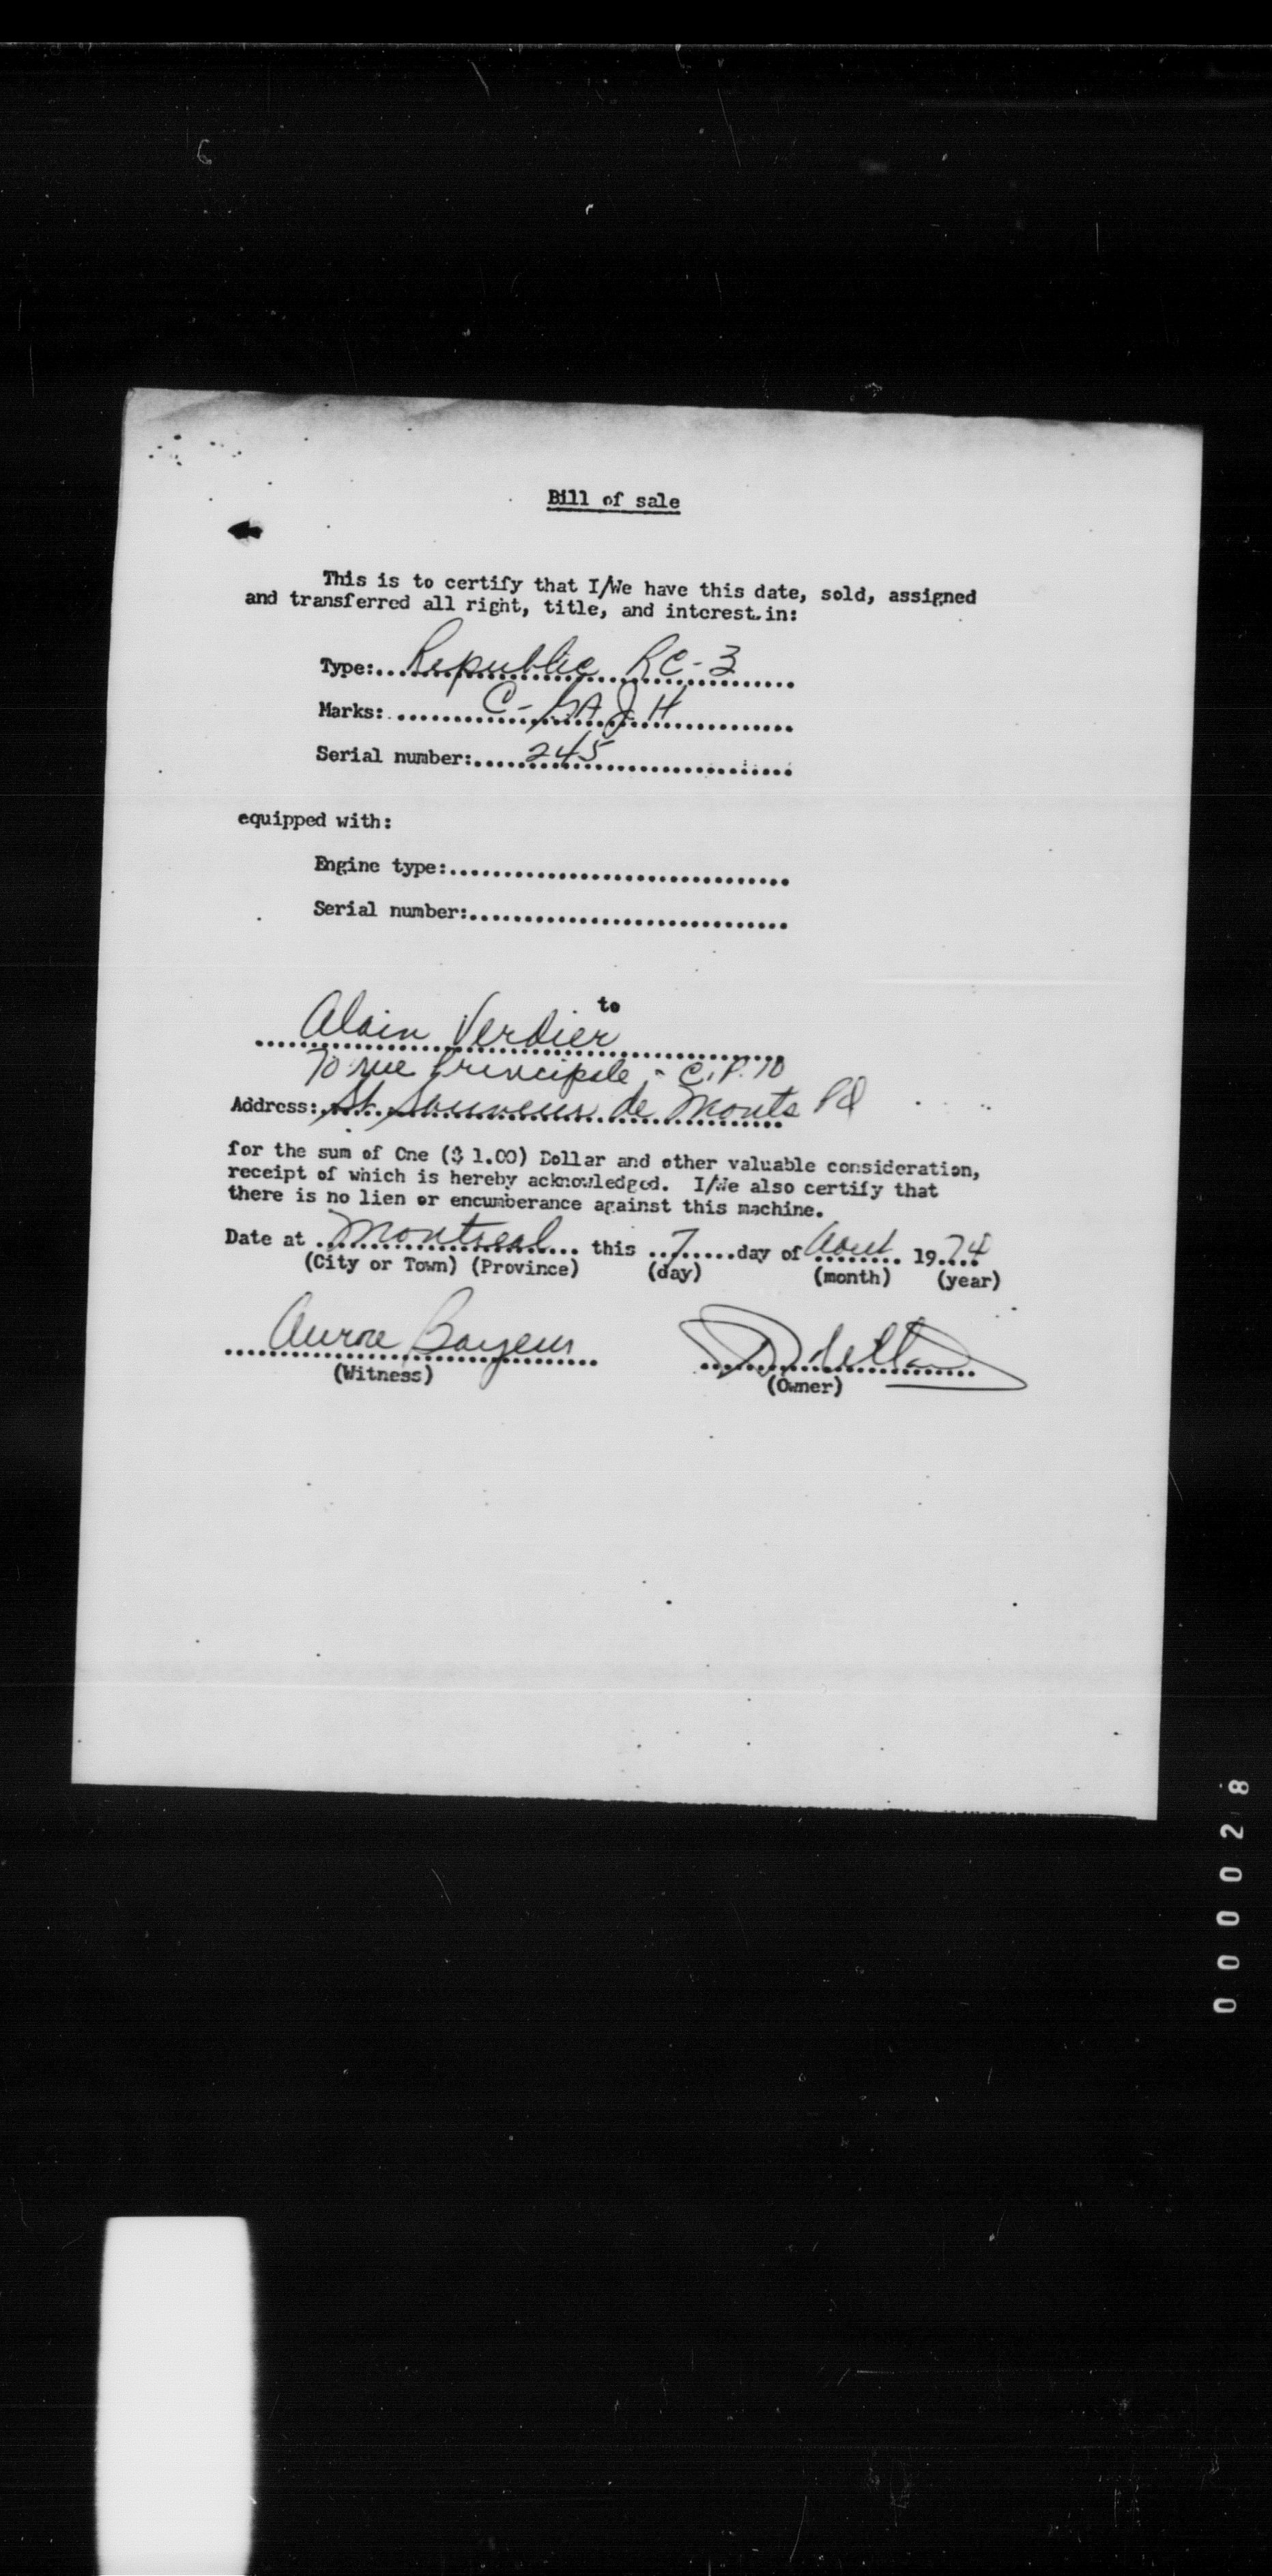 Bill of sale
This is to certify that I/We have this date, sold, assigned
and transferred all right, title, and interest in:
Type:....Republic RC-3....
Marks:....C-GAJH....
Serial number:....245....
equipped with:
Engine type:................................
Serial number:..............................
to
Alain Verdier
70 rue Principale - C.P. 70
Address:..St Sauveur de Monts PQ
for the sum of One ($ 1.00) Dollar and other valuable consideration,
receipt of which is hereby acknowledged. I/We also certify that
there is no lien or encumberance against this machine.
Date at ..Montreal.... this ..7.....day of Aout.. 19.74
(City or Town) (Province) (day) (month) (year)
Aurore
(Witness) (Owner)
000028